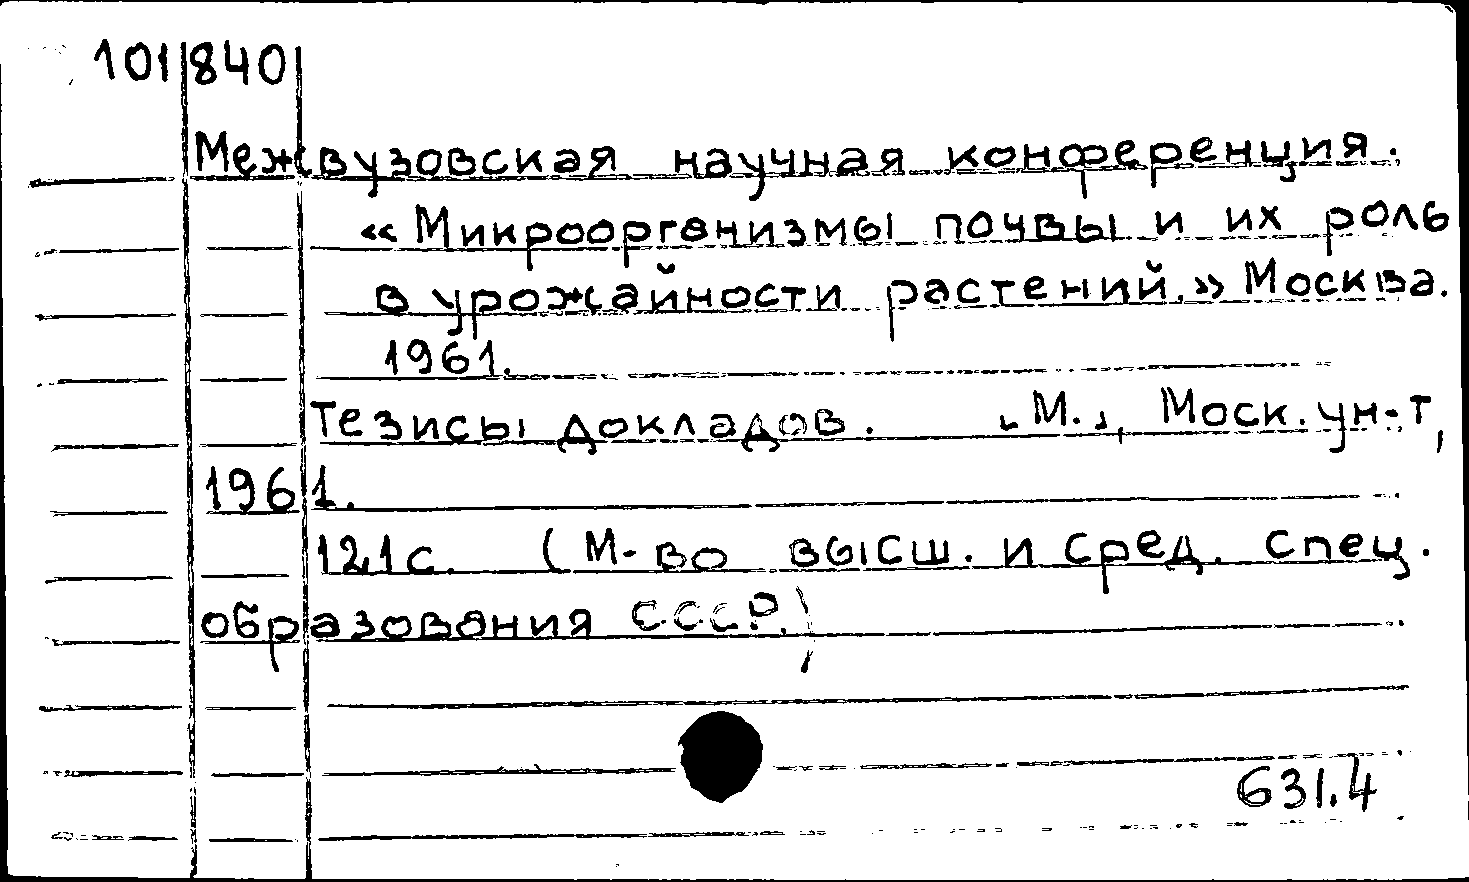 101840
Межвузовская научная конференция.
«Микроорганизмы почвы и их роль
в урожайности растений.» Москва.
1961.
Тезисы докладов. [М.], Моск. ун-т,
1961.
121с. (М-во высш. и сред. спец.
образования СССР.)
631.4